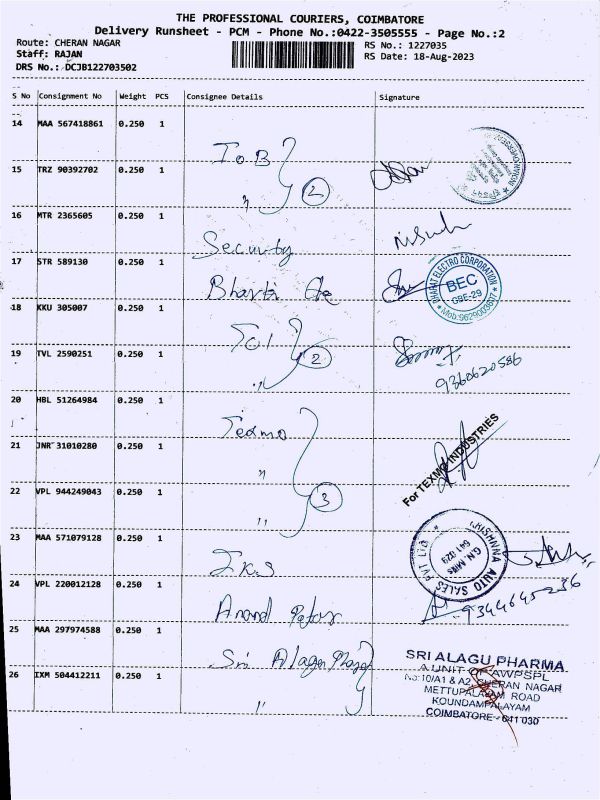 THE PROFESSIONAL COURIERS, COIMBATORE
Delivery Runsheet - PCM - Phone No.:0422-3505555 - Page No.:2
Route: CHERAN NAGAR
RS No.: 1227035
Staff: RAJAN
RS Date: 18-Aug-2023
DRS No.: DCJB122703502
S No Consignment No Weight PCS Consignee Details Signature
14 MAA 567418861 0.250 1
I.O.B
15 TRZ 90392702 0.250 1
" 2
16 MTR 2365605 0.250 1
Security
17 STR 589130 0.250 1
BHARAT ELECTRO CORPORATION
BEC
CBE-29
Mob:9629003607
18 KKU 305007 0.250 1
19 TVL 2590251 0.250 1
" 2
9360620586
20 HBL 51264984 0.250 1
Texmo
21 JNR 31010280 0.250 1
"
For TEXMO INDUSTRIES
22 VPL 944249043 0.250 1
" 3
23 MAA 571079128 0.250 1
KRISHNNA AUTO SALES PVT LTD
G.N. Mills
641 029
24 VPL 220012128 0.250 1
Anand
25 MAA 297974588 0.250 1
Sri Alagu
26 IXM 504412211 0.250 1
"
SRI ALAGU PHARMA
A UNIT OF AWPSPL
NO:10/A1 & A2, CHERAN NAGAR
METTUPALAYAM ROAD
KOUNDAMPALAYAM
COIMBATORE - 641 030